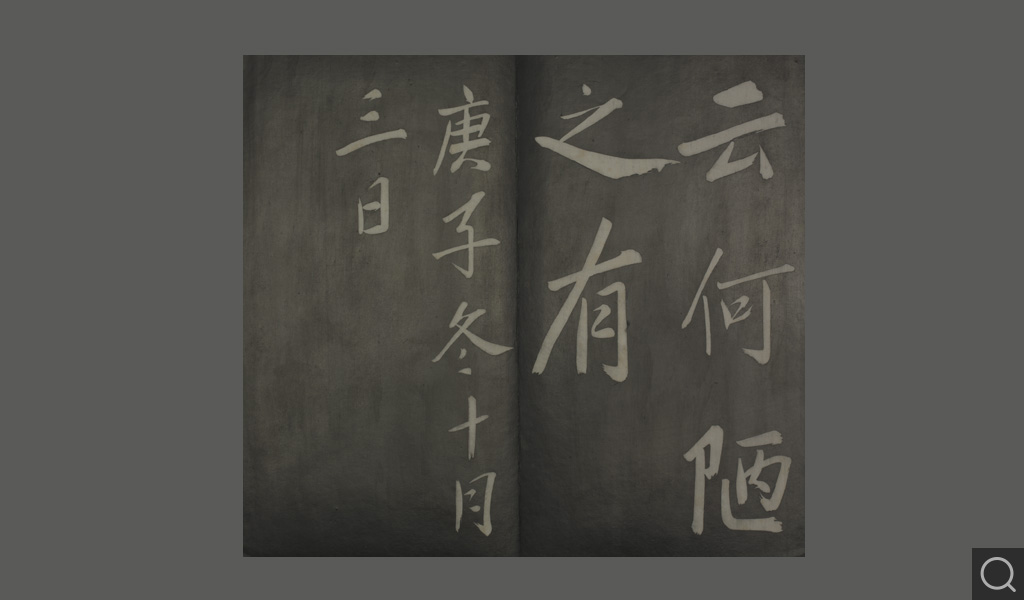 云何陋
之有
庚子冬十月
三日